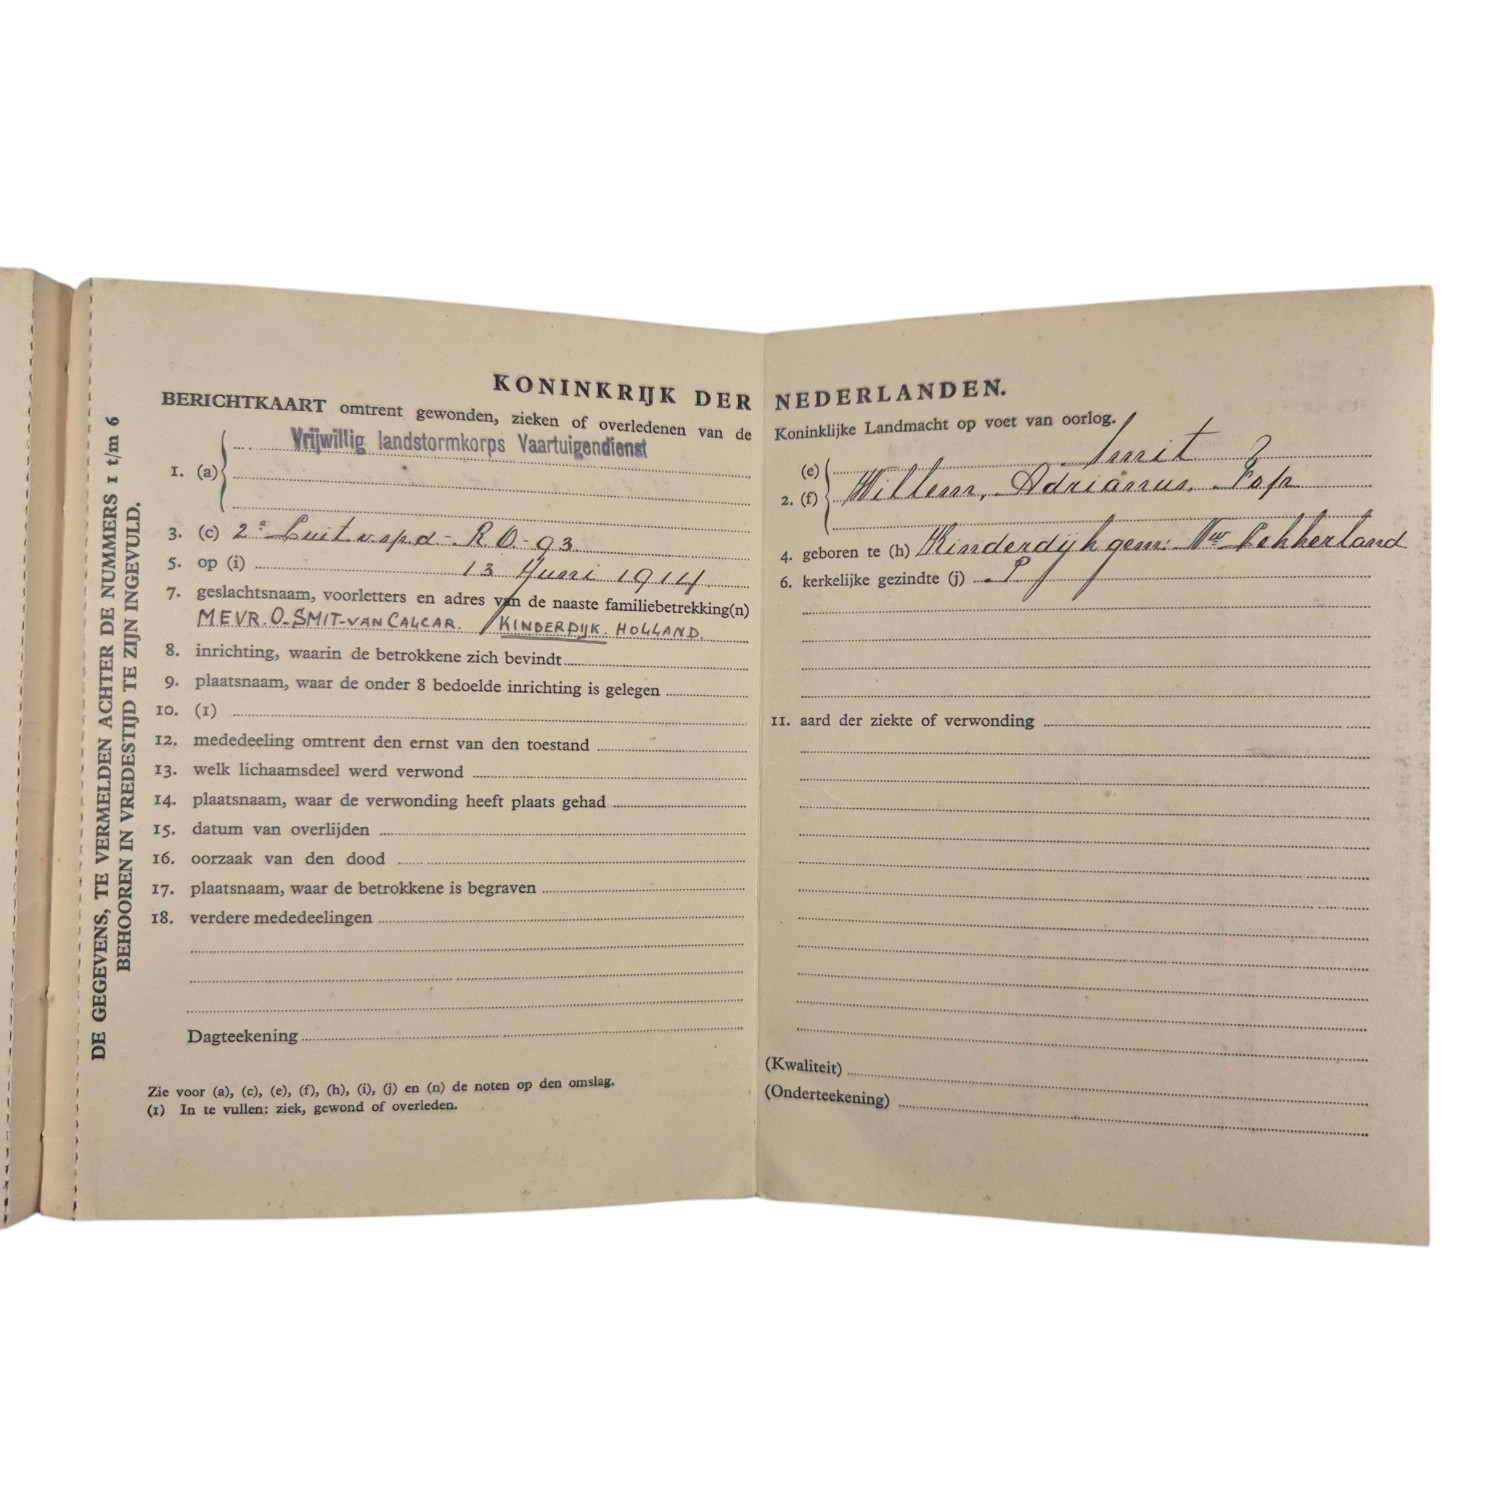 DE GEGEVENS, TE VERMELDEN ACHTER DE NUMMERS 1 t/m 6
BEHOOREN IN VREDESTIJD TE ZIJN INGEVULD.
KONINKRIJK DER NEDERLANDEN.
BERICHTKAART omtrent gewonden, zieken of overledenen van de Koninklijke Landmacht op voet van oorlog.
1. (a) Vrijwillig landstormkorps Vaartuigendienst
2. (e) Smit
(f) Willem, Adrianus, Fop
3. (c) 2e Luit v. sp. d - R.O. - 93
4. geboren te (h) Kinderdijk gem: Nw Lekkerland
5. op (i) 13 Juni 1914
6. kerkelijke gezindte (j) P
7. geslachtsnaam, voorletters en adres van de naaste familiebetrekking(n)
MEVR. O. SMIT-VAN CALCAR. KINDERDIJK. HOLLAND.
8. inrichting, waarin de betrokkene zich bevindt
9. plaatsnaam, waar de onder 8 bedoelde inrichting is gelegen
10. (1)
11. aard der ziekte of verwonding
12. mededeeling omtrent den ernst van den toestand
13. welk lichaamsdeel werd verwond
14. plaatsnaam, waar de verwonding heeft plaats gehad
15. datum van overlijden
16. oorzaak van den dood
17. plaatsnaam, waar de betrokkene is begraven
18. verdere mededeelingen
Dagteekening
(Kwaliteit)
(Onderteekening)
Zie voor (a), (c), (e), (f), (h), (i), (j) en (n) de noten op den omslag.
(1) In te vullen: ziek, gewond of overleden.